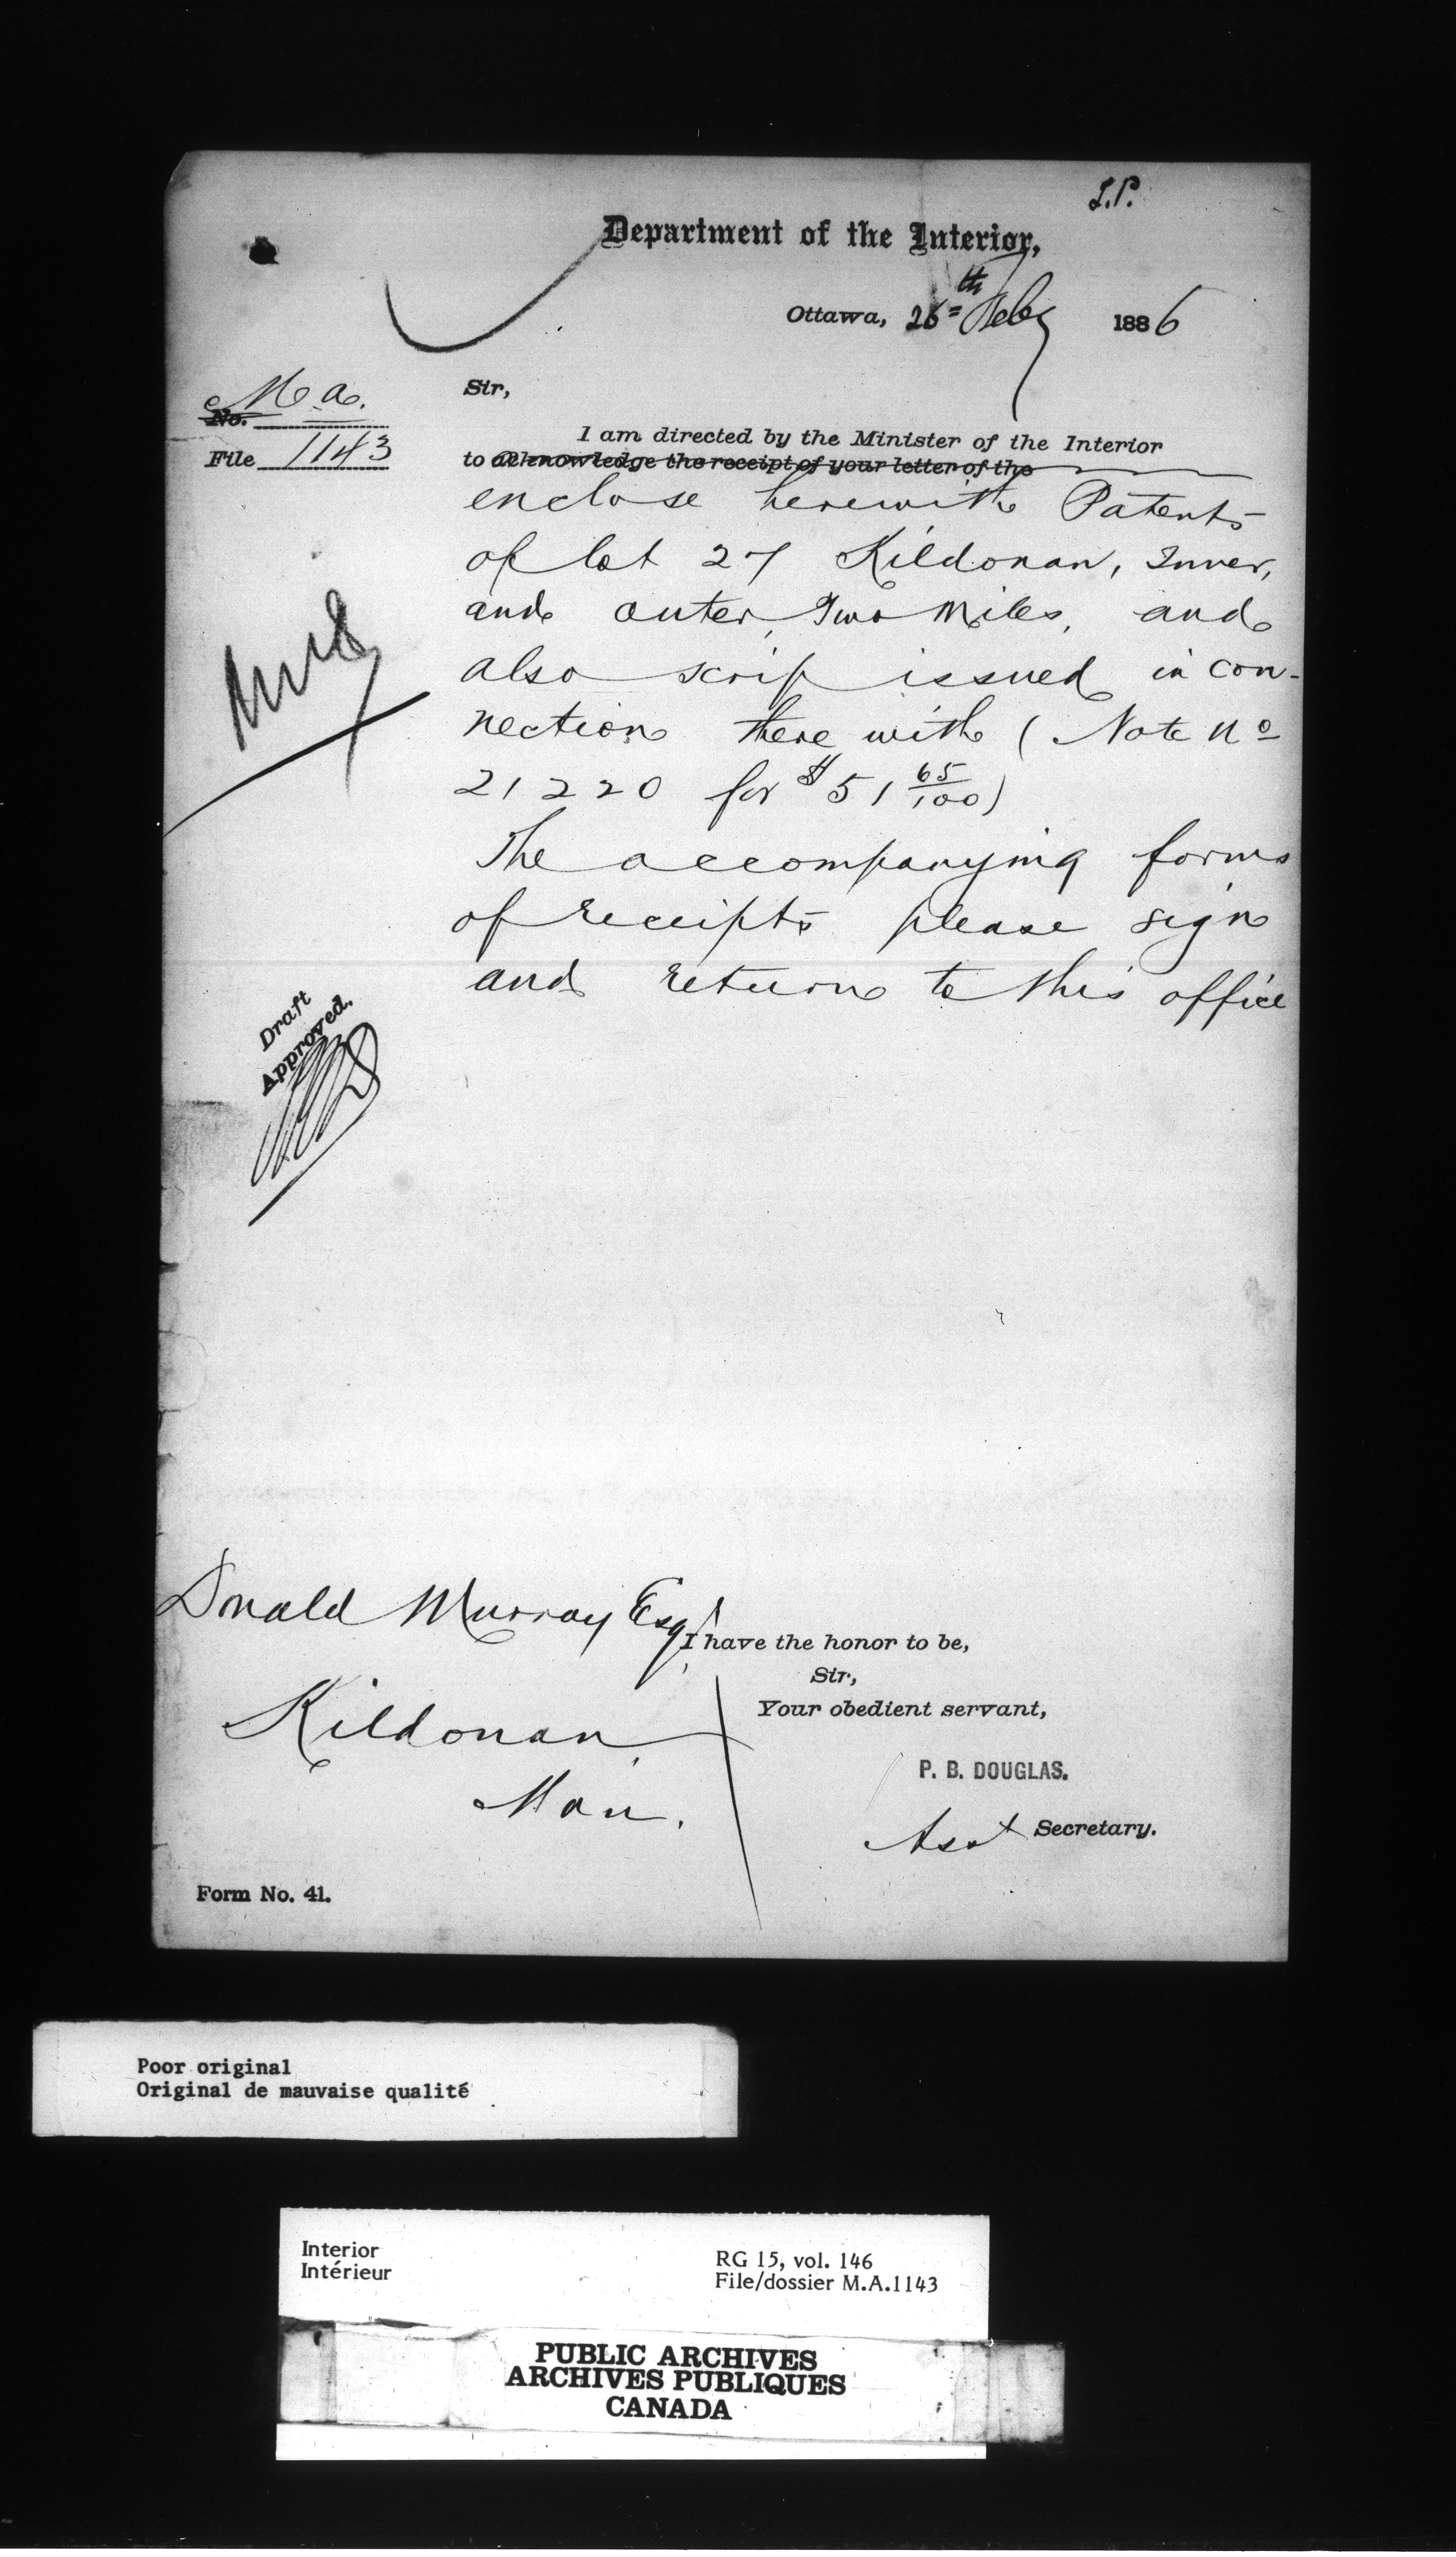 L.P.
Department of the Interior,
Ottawa, 26th Feby 1886
M.A.
No.
File 1143
Sir,
I am directed by the Minister of the Interior
to acknowledge the receipt of your letter of the
enclose herewith Patents
of lot 27 Kildonan, Inner,
and outer, Two Miles, and
also scrip issued in con-
nection there with (Note No
21220 for $51 65/100)
The accompanying forms
of receipts please sign
and return to this office
Draft
Approved.
Donald Murray Esqr
Kildonan,
Man.
I have the honor to be,
Sir,
Your obedient servant,
P. B. DOUGLAS.
Asst Secretary.
Form No. 41.
Poor original
Original de mauvaise qualité
Interior
Intérieur
RG 15, vol. 146
File/dossier M.A.1143
PUBLIC ARCHIVES
ARCHIVES PUBLIQUES
CANADA